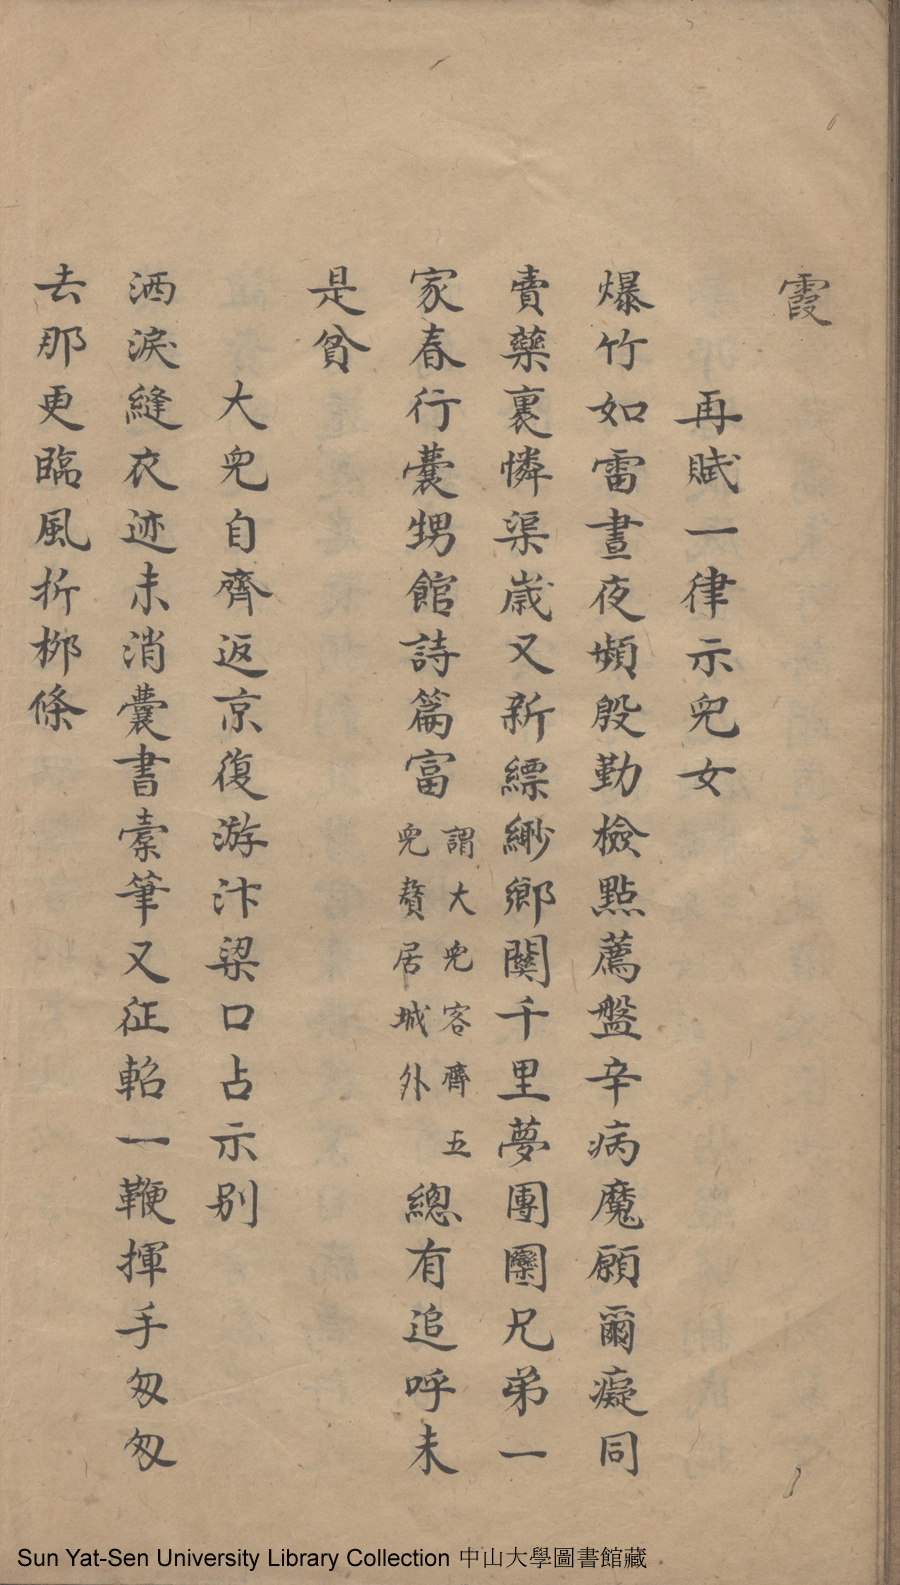 霞
再賦一律示兒女
爆竹如雷晝夜頻殷勤檢點薦盤辛病魔願爾癡同
賣藥裹憐渠歲又新縹緲鄉關千里夢團圞兄弟一
家春行囊甥館詩篇富謂大兒客齊五兒贅居城外總有追呼未
是貧
大兒自齊返京復游汴梁口占示別
洒淚縫衣迹未消囊書橐筆又征軺一鞭揮手匆匆
去那更臨風折柳條
Sun Yat-Sen University Library Collection 中山大學圖書館藏